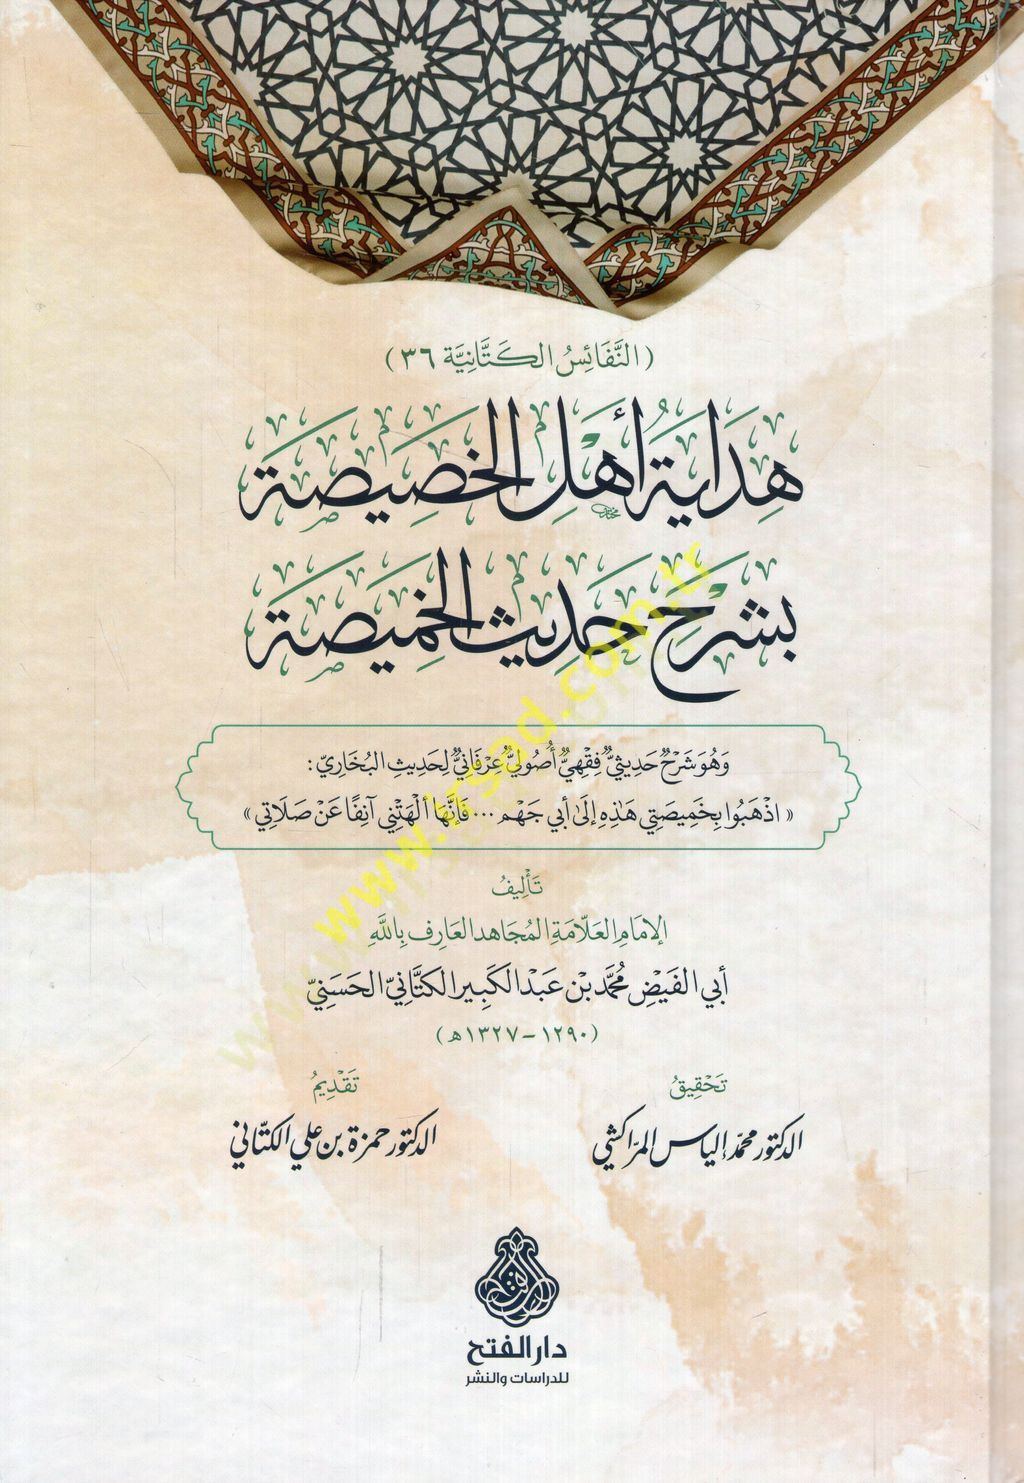 (النَّفَائِسُ الكَتَّانِيَّة ٣٦)
هِدَايَةُ أَهْلِ الخَصِيصَة
بِشَرْحِ حَدِيثِ الخَمِيصَة
وَهُوَ شَرْحٌ حَدِيثِيٌّ فِقْهِيٌّ أُصُولِيٌّ عِرْفَانِيٌّ لِحَدِيثِ البُخَارِيّ :
« اذْهَبُوا بِخَمِيصَتِي هَذِهِ إِلَى أَبِي جَهْم ... فَإِنَّهَا أَلْهَتْنِي آنِفًا عَنْ صَلَاتِي »
تَأْلِيفُ
الإِمَامِ العَلَّامَةِ المُجَاهِدِ العَارِفِ بِاللَّهِ
أَبِي الفَيْضِ مُحَمَّد بْن عَبْد الكَبِير الكتَّانِيّ الحَسَنِيّ
(١٢٩٠ – ١٣٢٧ه)
تَحْقِيقُ
تَقْدِيمُ
الدكتور محمّد إلياس المرّاكشي
الدكتور حمزة بن علي الكتّاني
دار الفتح
للدراسات والنشر
www.irsad.com.tr